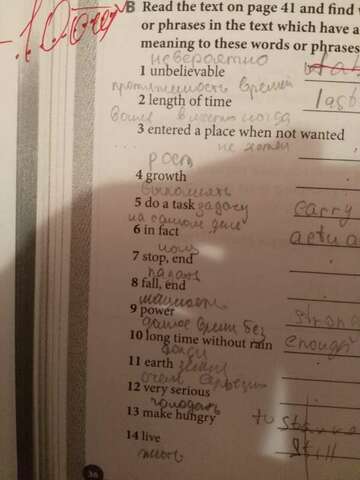 B Read the text on page 41 and find
or phrases in the text which have a
meaning to these words or phrases
невероятно
1 unbelievable
протяженность времени
2 length of time last
3 entered a place when not wanted
не хотят
рост
4 growth
выполнять
5 do a task задачу carry
на самом деле
6 in fact actua
7 stop, end
падать
8 fall, end
9 power strong
долгое время без
10 long time without rain enough
11 earth земля
очень серьезно
12 very serious
голодать
13 make hungry to starve
14 live still
жить
36